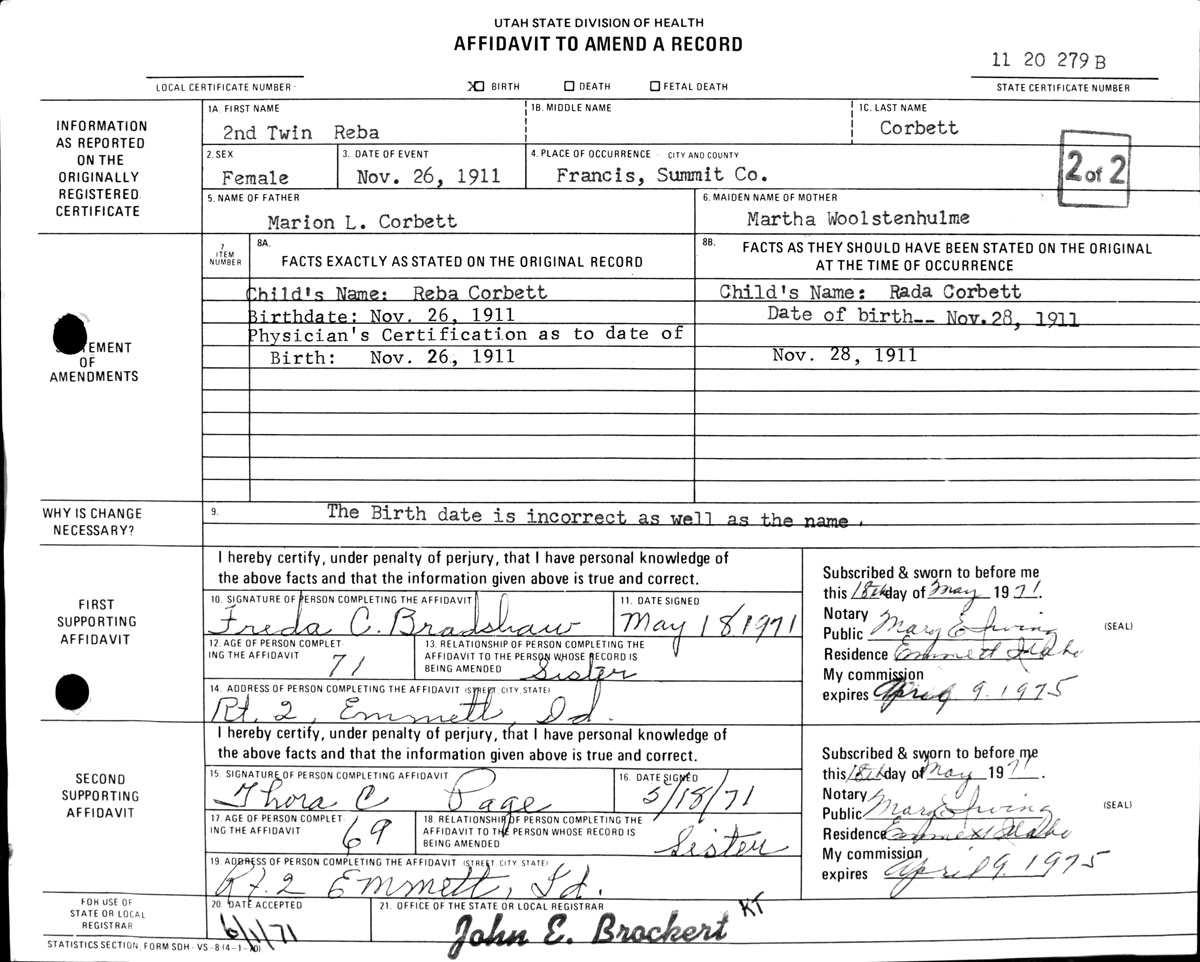 UTAH STATE DIVISION OF HEALTH
AFFIDAVIT TO AMEND A RECORD
11 20 279 B
LOCAL CERTIFICATE NUMBER
X BIRTH DEATH FETAL DEATH
STATE CERTIFICATE NUMBER
INFORMATION AS REPORTED ON THE ORIGINALLY REGISTERED CERTIFICATE
1A. FIRST NAME 1B. MIDDLE NAME 1C. LAST NAME
2nd Twin Reba Corbett
2. SEX 3. DATE OF EVENT 4. PLACE OF OCCURRENCE - CITY AND COUNTY
Female Nov. 26, 1911 Francis, Summit Co.
2 of 2
5. NAME OF FATHER 6. MAIDEN NAME OF MOTHER
Marion L. Corbett Martha Woolstenhulme
STATEMENT OF AMENDMENTS
7 ITEM NUMBER
8A. FACTS EXACTLY AS STATED ON THE ORIGINAL RECORD
8B. FACTS AS THEY SHOULD HAVE BEEN STATED ON THE ORIGINAL AT THE TIME OF OCCURRENCE
Child's Name: Reba Corbett Child's Name: Rada Corbett
Birthdate: Nov. 26, 1911 Date of birth-- Nov.28, 1911
Physician's Certification as to date of
Birth: Nov. 26, 1911 Nov. 28, 1911
WHY IS CHANGE NECESSARY?
9. The Birth date is incorrect as well as the name.
FIRST SUPPORTING AFFIDAVIT
I hereby certify, under penalty of perjury, that I have personal knowledge of
the above facts and that the information given above is true and correct.
10. SIGNATURE OF PERSON COMPLETING THE AFFIDAVIT 11. DATE SIGNED
Freda C. Bradshaw May 18, 1971
12. AGE OF PERSON COMPLETING THE AFFIDAVIT 71
13. RELATIONSHIP OF PERSON COMPLETING THE AFFIDAVIT TO THE PERSON WHOSE RECORD IS BEING AMENDED Sister
14. ADDRESS OF PERSON COMPLETING THE AFFIDAVIT (STREET, CITY, STATE)
Rt. 2, Emmett, Id.
Subscribed & sworn to before me
this 18th day of May 1971.
Notary
Public Mary E Irving (SEAL)
Residence Emmett Idaho
My commission
expires April 9, 1975
SECOND SUPPORTING AFFIDAVIT
I hereby certify, under penalty of perjury, that I have personal knowledge of
the above facts and that the information given above is true and correct.
15. SIGNATURE OF PERSON COMPLETING AFFIDAVIT 16. DATE SIGNED
Thora C Page 5/18/71
17. AGE OF PERSON COMPLETING THE AFFIDAVIT 69
18. RELATIONSHIP OF PERSON COMPLETING THE AFFIDAVIT TO THE PERSON WHOSE RECORD IS BEING AMENDED Sister
19. ADDRESS OF PERSON COMPLETING THE AFFIDAVIT (STREET, CITY, STATE)
Rt. 2 Emmett, Id.
Subscribed & sworn to before me
this 18th day of May 1971.
Notary
Public Mary E Irving (SEAL)
Residence Emmett Idaho
My commission
expires April 9, 1975
FOR USE OF STATE OR LOCAL REGISTRAR
20. DATE ACCEPTED 21. OFFICE OF THE STATE OR LOCAL REGISTRAR
6/1/71 John E. Brockert KT
STATISTICS SECTION, FORM SDH - VS - 8 (4-1-70)